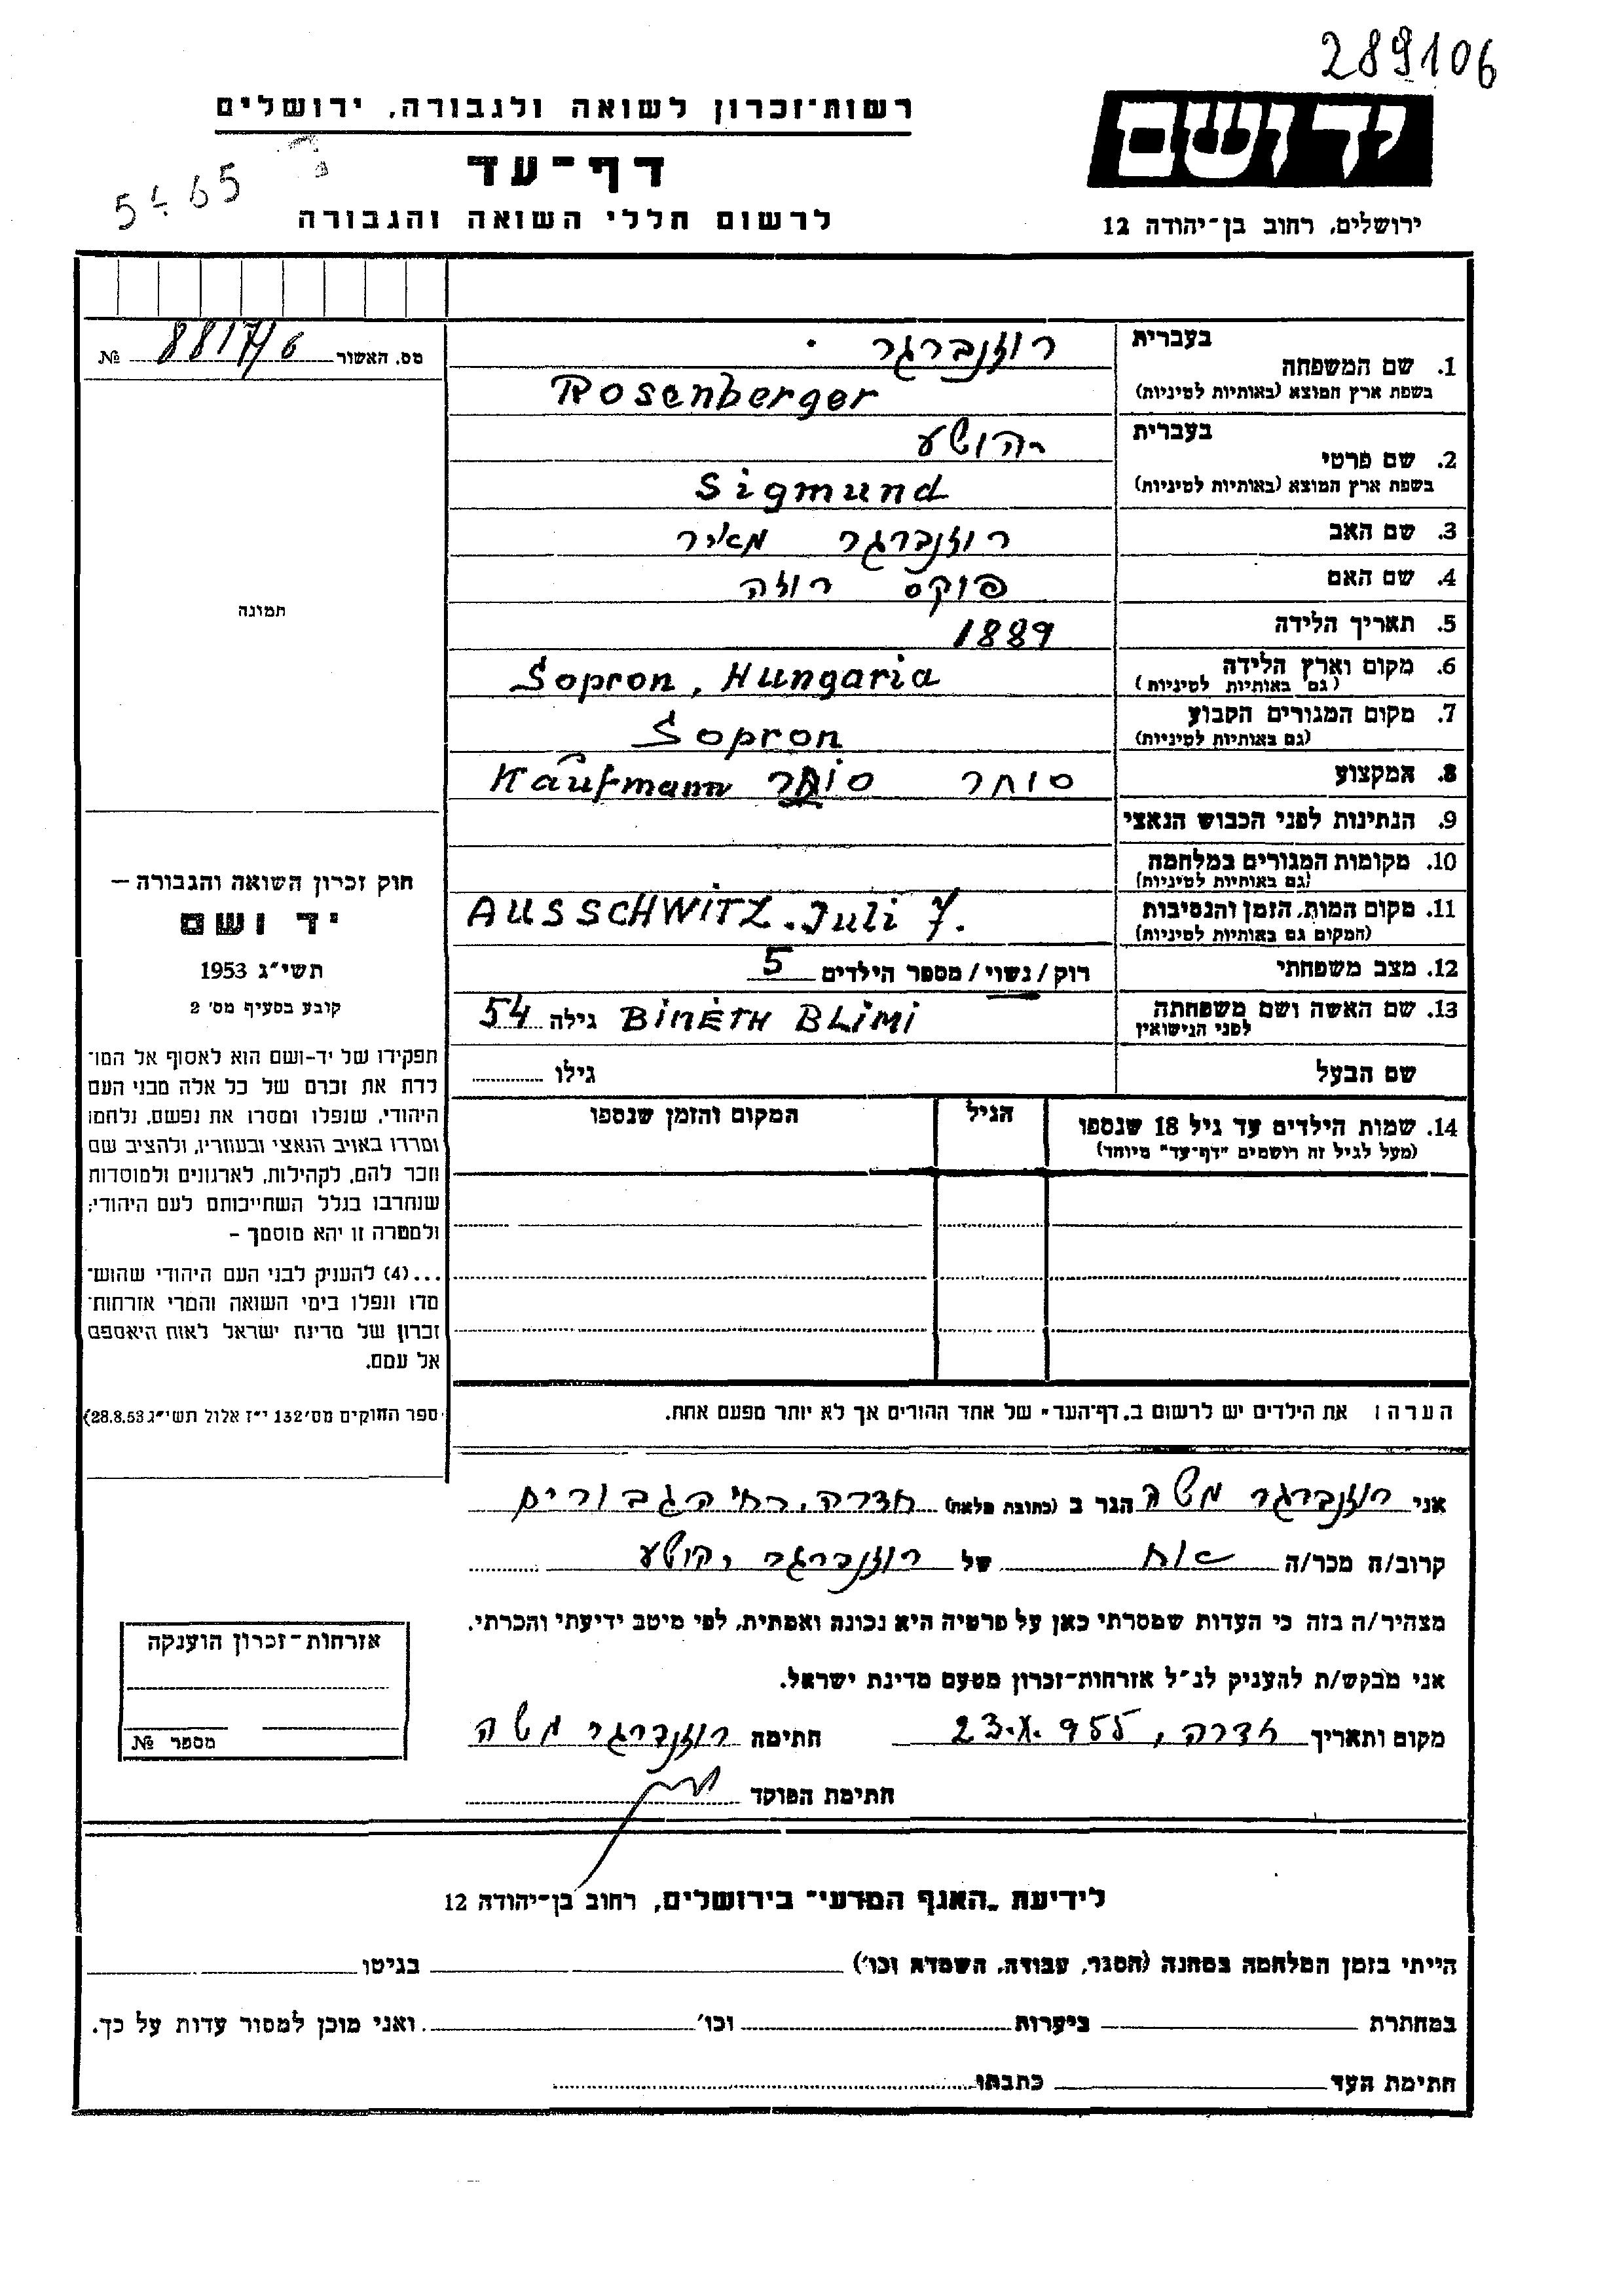 289106
יד ושם
רשות־זכרון לשואה ולגבורה, ירושלים
דף־עד
לרשום חללי השואה והגבורה
ירושלים, רחוב בן־יהודה 12
מס. האשור 8817/6 №
בעברית רוזנברגר
1. שם המשפחה
בשפת ארץ המוצא (באותיות לטיניות) Rosenberger
בעברית יהושע
2. שם פרטי
בשפת ארץ המוצא (באותיות לטיניות) Sigmund
3. שם האב רוזנברגר מאיר
4. שם האם פוקס רוזה
5. תאריך הלידה 1889
6. מקום וארץ הלידה Sopron, Hungaria
(גם באותיות לטיניות)
7. מקום המגורים הקבוע Sopron
(גם באותיות לטיניות)
8. המקצוע סוחר סוחר Kaufmann
9. הנתינות לפני הכבוש הנאצי
10. מקומות המגורים במלחמה
(גם באותיות לטיניות)
11. מקום המות, הזמן והנסיבות AUSSCHWITZ. Juli 7.
(המקום גם באותיות לטיניות)
12. מצב משפחתי רוק/נשוי/מספר הילדים 5
13. שם האשה ושם משפחתה BINETH BLIMI גילה 54
לפני הנישואין
שם הבעל גילו
14. שמות הילדים עד גיל 18 שנספו הגיל המקום והזמן שנספו
(מעל לגיל זה רושמים "דף־עד" מיוחד)
הערה: את הילדים יש לרשום ב„דף־העד" של אחד ההורים אך לא יותר מפעם אחת.
תמונה
חוק זכרון השואה והגבורה —
יד ושם
תשי"ג 1953
קובע בסעיף מס' 2
תפקידו של יד-ושם הוא לאסוף אל המו־
לדת את זכרם של כל אלה מבני העם
היהודי, שנפלו ומסרו את נפשם, נלחמו
ומרדו באויב הנאצי ובעוזריו, ולהציב שם
וזכר להם, לקהילות, לארגונים ולמוסדות
שנחרבו בגלל השתייכותם לעם היהודי;
ולמטרה זו יהא מוסמך –
...(4) להעניק לבני העם היהודי שהוש־
מדו ונפלו בימי השואה והמרי אזרחות־
זכרון של מדינת ישראל לאות היאספם
אל עמם.
ספר החוקים מס' 132 י"ז אלול תשי"ג 28.8.53)
אני רוזנברגר משה הגר ב (כתובת מלאה) חדרה, רח' הגבורים
קרוב/ה מכר/ה אח של רוזנברגר יהושע
מצהיר/ה בזה כי העדות שמסרתי כאן על פרטיה היא נכונה ואמתית, לפי מיטב ידיעתי והכרתי.
אני מבקש/ת להעניק לנ"ל אזרחות־זכרון מטעם מדינת ישראל.
מקום ותאריך חדרה, 23.X.955 חתימה רוזנברגר משה
חתימת הפוקד
אזרחות־זכרון הוענקה
מספר №
לידיעת „האגף המדעי" בירושלים, רחוב בן־יהודה 12
הייתי בזמן המלחמה במחנה (הסגר, עבודה, השמדה וכו') בגיטו
במחתרת ביערות וכו' ואני מוכן למסור עדות על כך.
חתימת העד כתבתו